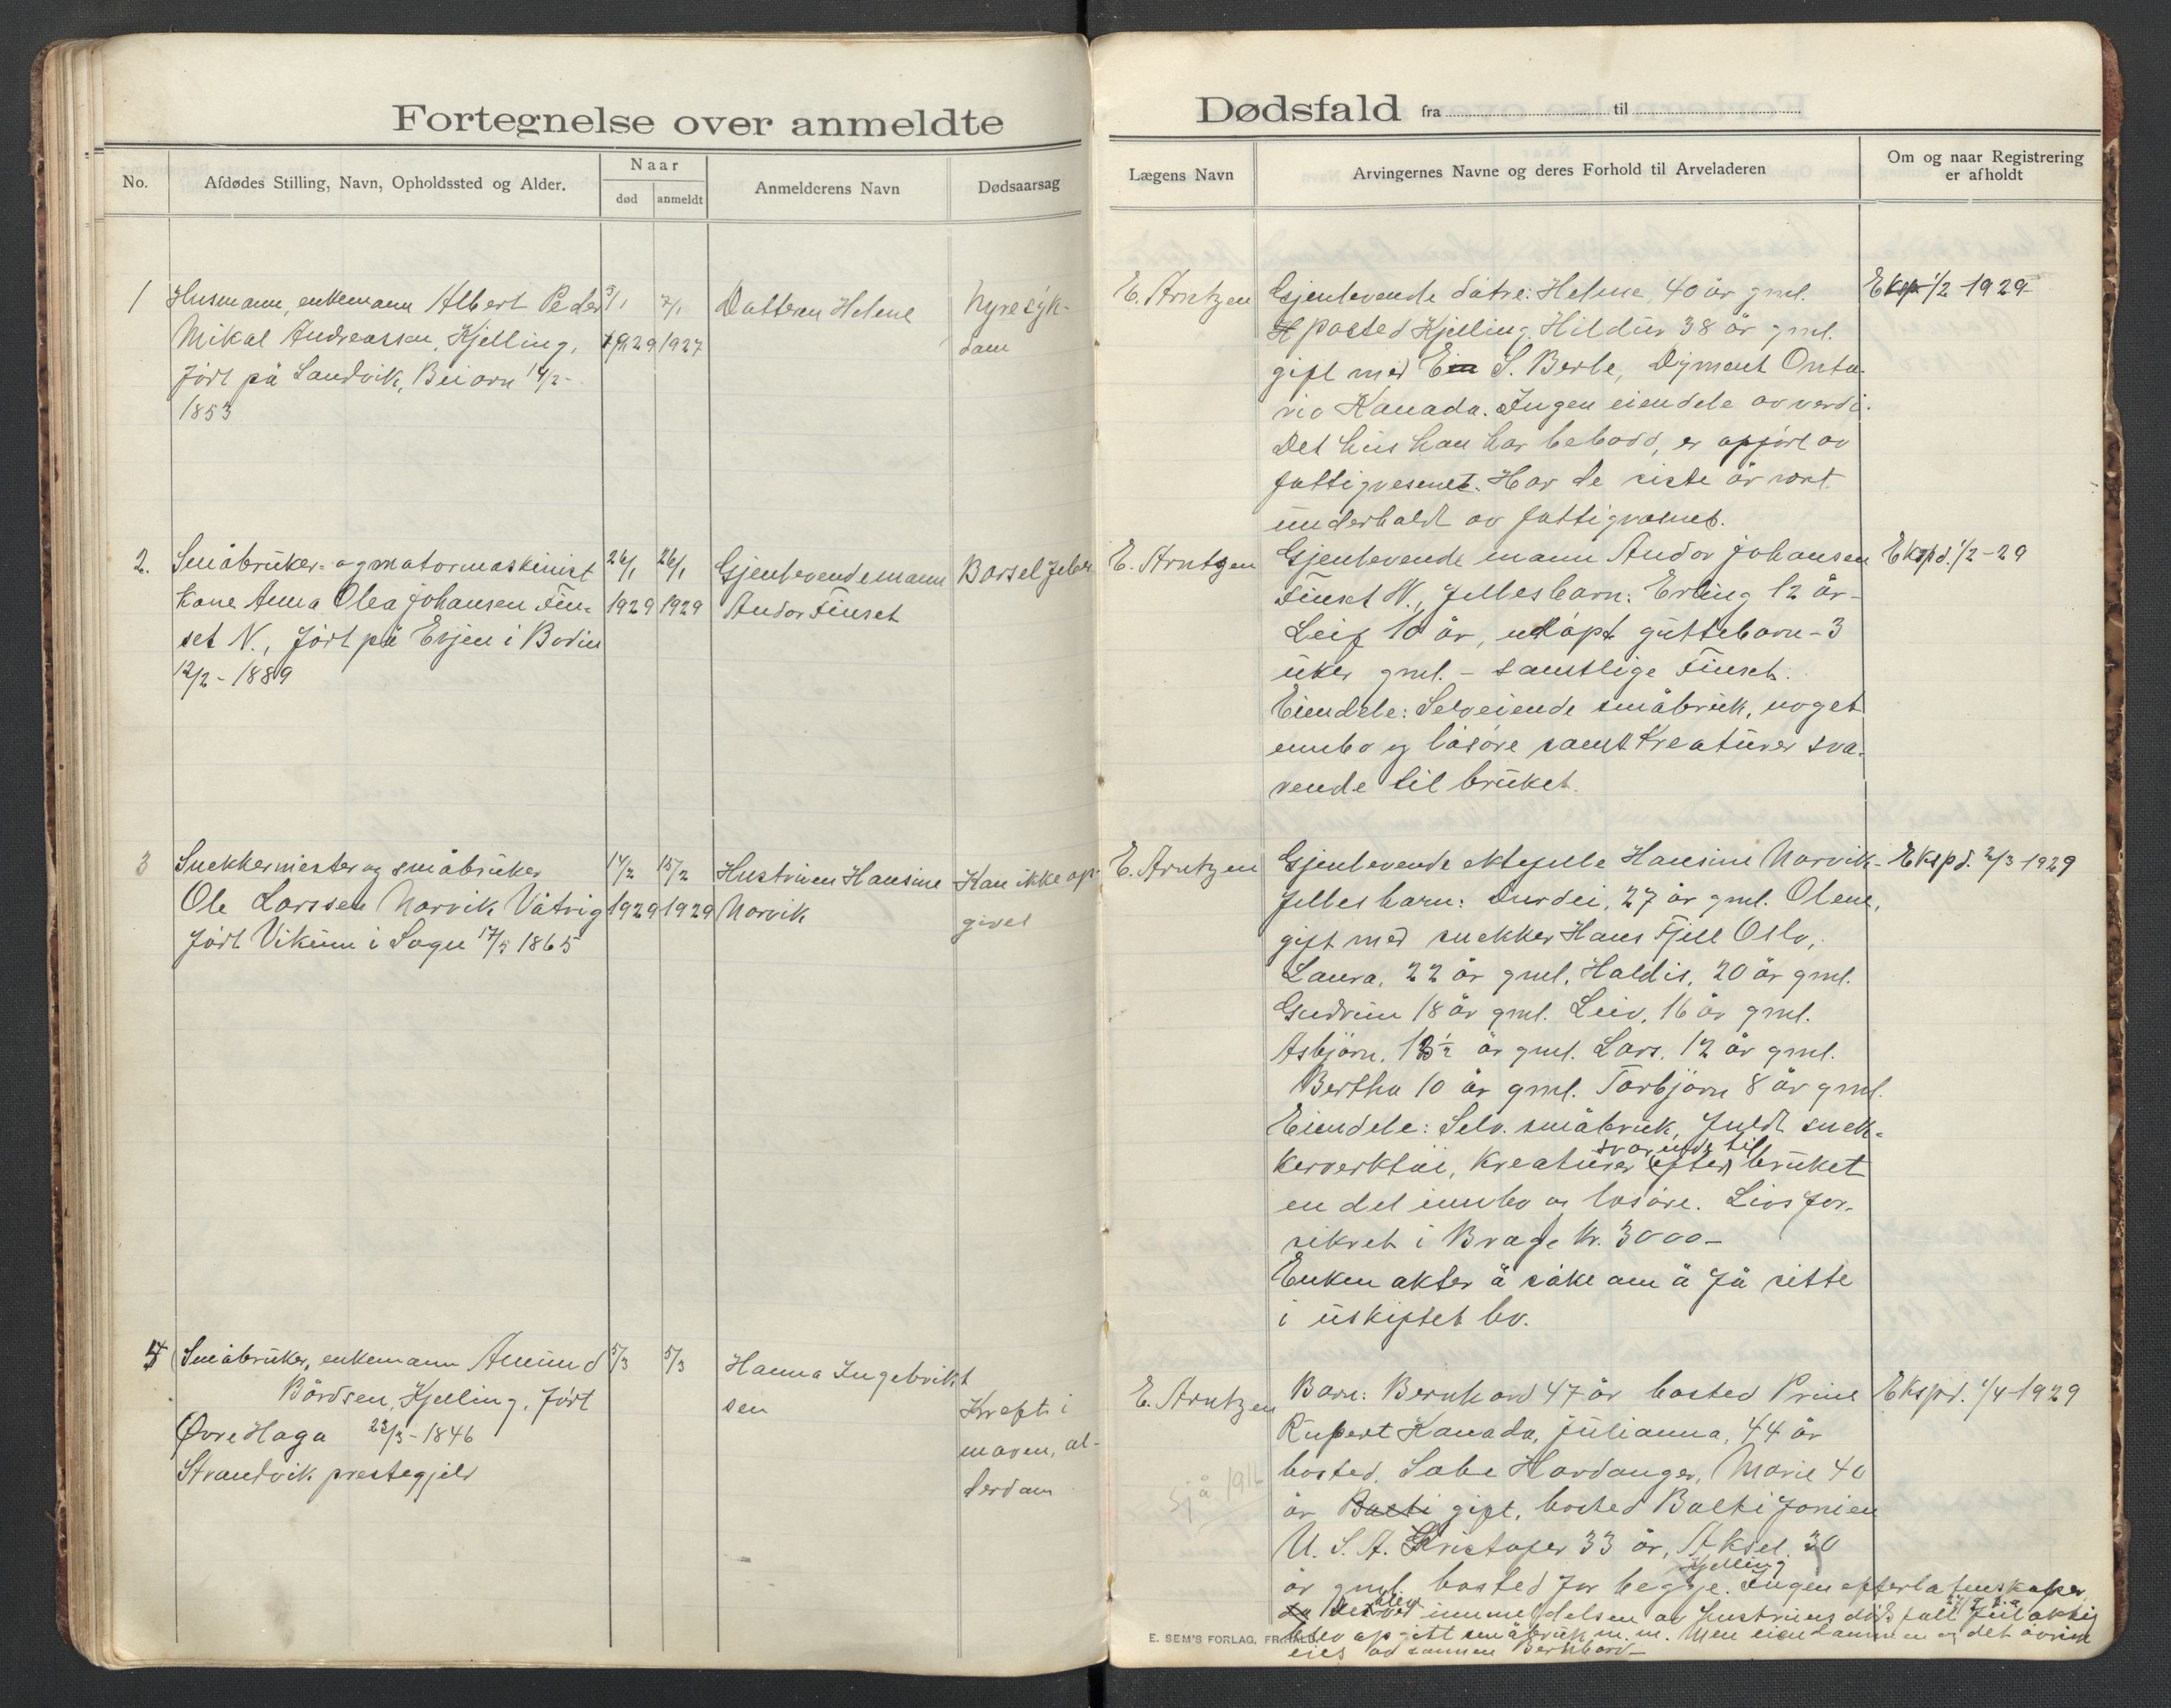 Fortegnelse over anmeldte
No.
Afdødes Stilling, Navn, Opholdssted og Alder.
Naar
død
anmeldt
Anmelderens Navn
Dødsaarsag
1
Husmann, enkemann Albert Peder
Mikal Andreassen, Kjelling,
født på Sandvik, Beiarn 14/2-
1853
3/1
1929
7/1
1927
Datteren Helene
Nyresyk-
dom
2.
Småbruker- og motormaskinist
kone Anna Olea Johansen Fin-
set N., født på Evjen i Bodin
12/2 - 1889
26/1
1929
26/1
1929
Gjenlevende mann
Andor Finset
Barselfeber
3
Snekkermester og småbruker
Ole Larssen Norvik Våtvig
født Vikum i Sogn 17/5 1865
14/2
1929
15/2
1929
Hustruen Hansine
Norvik
Kan ikke op-
gives
4
Småbruker, enkemann Amund
Bårdsen, Kjelling, født
Øvre Haga 23/3 - 1846
Strandvik prestegjeld
5/3
5/3
Hanna Ingebrikt
sen
Kreft i
maven, al-
derdom
Dødsfald fra til
Lægens Navn
Arvingernes Navne og deres Forhold til Arveladeren
Om og naar Registrering
er afholdt
E. Arntzen
Gjenlevende døtre: Helene, 40 år gml.
bosted Kjelling. Hildur 38 år gml.
gift med S. Berle, Dyment Onta-
rio Kanada. Ingen eiendele av verdi.
Det hus han har bebodd, er opført av
fattigvesenet. Har de siste år vært
underholdt av fattigvæsnet.
Eksp 1/2 1929
E. Arntzen
Gjenlevende mann Andor Johansen
Finset N., Fellesbarn: Erling 12 år-
Leif 10 år, udøpt guttebarn - 3
uker gml. - samtlige Finset.
Eiendele: Selveiende småbruk, noget
innbo og løsøre samt kreaturer sva-
rende til bruket.
Ekspd. 1/2 - 29
E. Arntzen
Gjenlevende ektefelle Hansine Norvik-
Fellesbarn: Durdei, 27 år gml. Olene,
gift med snekker Hans Fjell Oslo,
Laura, 22 år gml. Haldis, 20 år gml.
Gudrun 18 år gml. Leiv, 16 år gml.
Asbjørn, 13½ år gml. Lars, 12 år gml.
Bertha 10 år gml. Torbjørn 8 år gml.
Eiendele: Selv. småbruk, fuldt snek-
svarende til
kerverktøi, kreaturer (efter) bruket
en del innbo og løsøre. Livsfor-
sikret i Brage kr. 3000-
Enken akter å søke om å få sitte
i uskiftet bo.
Ekspd. 2/3 1929
E. Arntzen
Sjå 1916
Barn: Bernhard 47 år bosted Prins
Rupert Kanada, Julianna, 44 år
bosted Hardanger, Marie 40
år gift, bosted
U. S. A. Kristofer 33 år, Aksel 30
Kjelling
år gml. bosted for begge. Ingen efterlatenskaper
blev
ved innmeldelsen av hustruens dødsfall
blev opgitt småbruk m. m. Men eiendommen og det øvrige
eies av sønnen Bernhard-
Ekspd. 1/4 1929
E. SEM'S FORLAG, FR.HALD.